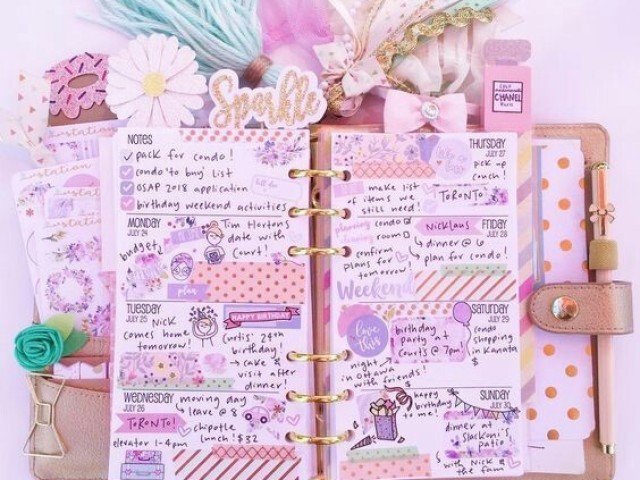 Sparkle
COCO
CHANEL
NOTES
pack for condo!
condo 'to buy' list
OSAP 2018 application
birthday weekend activities
MONDAY
JULY 24
Tim Hortons
date with
Court!
budget
plan
TUESDAY
JULY 25
Nick
comes home
tomorrow!
HAPPY BIRTHDAY
Curtis' 24th
birthday!
→ cake &
visit after
dinner!
WEDNESDAY
JULY 26
moving day
leave @ 8
TORONTO!
chipotle
lunch! $32
elevator 1-4pm
THURSDAY
JULY 27
pick up
couch!
make list
of items we
still need!
TORONTO!
planning condo
room
confirm
plans for
tomorrow!
Weekend
Nicklaus
FRIDAY
JULY 28
dinner @ 6
plan for condo!
SATURDAY
JULY 29
love
this
birthday
party at
Court's @ 7pm!
condo
shopping
in Kanata
$
night
in Ottawa
with friends!
SUNDAY
JULY 30
happy
birthday
to me!
dinner at
Slackoni's
patio
with Nick &
the fam